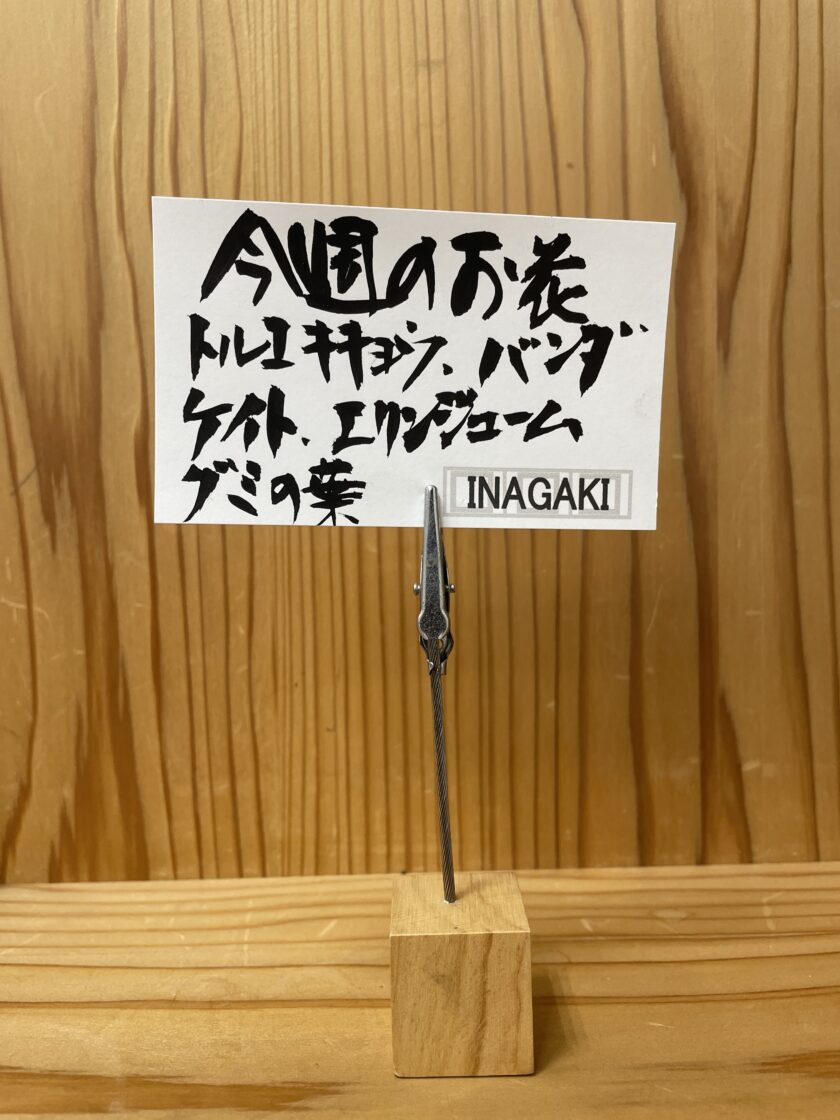 今週のお花
トルコキキョウ、バンダ
ケイト、エリンジューム
グミの葉
INAGAKI